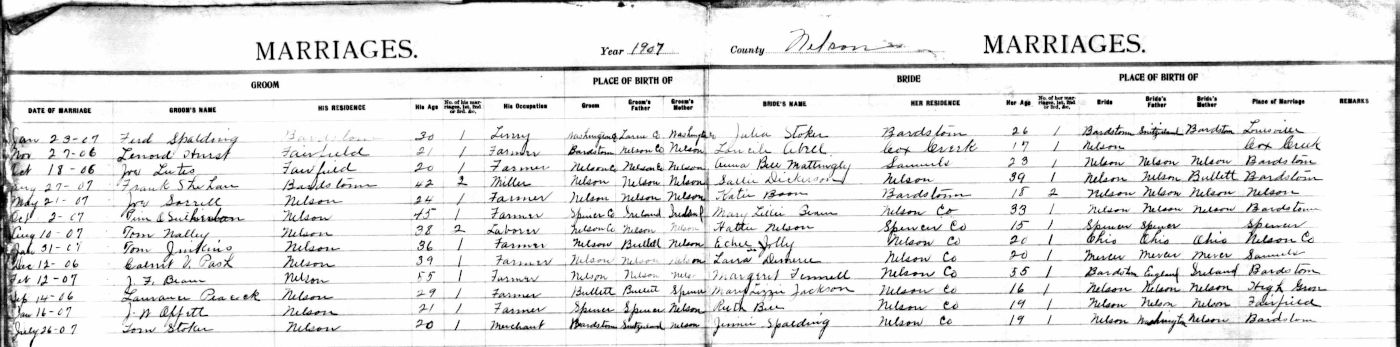 MARRIAGES. Year 1907 County Nelson MARRIAGES.
GROOM PLACE OF BIRTH OF BRIDE PLACE OF BIRTH OF
DATE OF MARRIAGE GROOM'S NAME HIS RESIDENCE His Age No. of his marriages, 1st, 2nd or 3rd, &c. His Occupation Groom Groom's Father Groom's Mother BRIDE'S NAME HER RESIDENCE Her Age No. of her marriages, 1st, 2nd or 3rd, &c. Bride Bride's Father Bride's Mother Place of Marriage REMARKS
Jan 23-07 Ferd Spalding Bardstom 30 1 Livry Washington Larue C Washington Julia Stoker Bardstom 26 1 Bardstom Switzerland Bardstom Louisville
Nov 27-06 Lenord Hurst Fairfield 21 1 Farmer Bardstom Nelson Co Nelson Abell Cox Creek 17 1 Nelson Cox Creek
Oct 18-06 Joe Lutes Fairfield 20 1 Farmer Nelson Co Nelson Co Nelson Anna Bell Mattingly Samuels 23 1 Nelson Nelson Nelson Bardstom
Aug 27-07 Frank Bardstom 42 2 Miller Nelson Nelson Nelson Sallie Dickerson Nelson 39 1 Nelson Nelson Bullett Bardstom
May 21-07 Joe Sorrell Nelson 24 1 Farmer Nelson Nelson Nelson Katie Boon Bardstom 18 2 Nelson Nelson Nelson Nelson
Oct 2-07 Nelson 45 1 Farmer Spencer C Ireland Ireland Mary Lillie Beam Nelson Co 33 1 Nelson Nelson Nelson Bardstom
Aug 10-07 Tom Nalley Nelson 38 2 Laborer Nelson C Nelson Nelson Hattie Nelson Spencer Co 15 1 Spencer Spencer Spencer
Jan 31-07 Tom Jenkins Nelson 36 1 Farmer Nelson Bullett Nelson Jolly Nelson Co 20 1 Ohio Ohio Ohio Nelson Co
Dec 12-06 Nelson 39 1 Farmer Nelson Nelson Nelson Laura Nelson Co 20 1 Mercer Mercer Mercer Samuels
Feb 12-07 J. F. Beam Nelson 55 1 Farmer Nelson Nelson Nels Margaret Nelson Co 35 1 Bardstom England Ireland Bardstom
Sep 14-06 Laurance Peacock Nelson 29 1 Farmer Bullett Bullett Spencer Jackson Nelson Co 16 1 Nelson Nelson Nelson High Grov
Jan 16-07 J. W Offett Nelson 21 1 Farmer Spencer Spencer Nelson Ruth Nelson Co 19 1 Nelson Nelson Nelson Fairfield
July 26-07 Tom Stoker Nelson 20 1 Merchant Bardstom Switzerland Nelson Jennie Spalding Nelson Co 19 1 Nelson Washington Nelson Bardstom